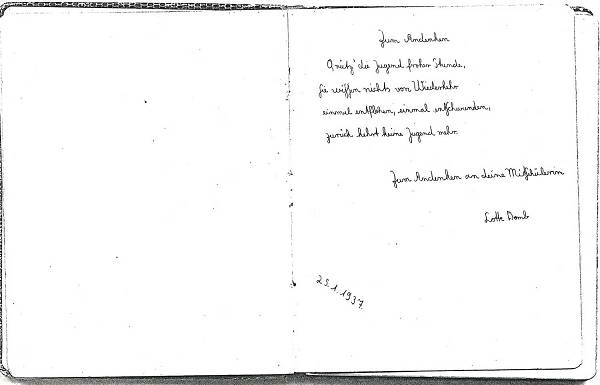 Zum Andenken
O nütz' die Jugend froher Stunde,
Sie wissen nichts von Wiederkehr
einmal entflohen, einmal entschwunden,
zurück kehrt keine Jugend mehr.
Zum Andenken an deine Mitschülerin
Lotte Domb
25.1.1937.